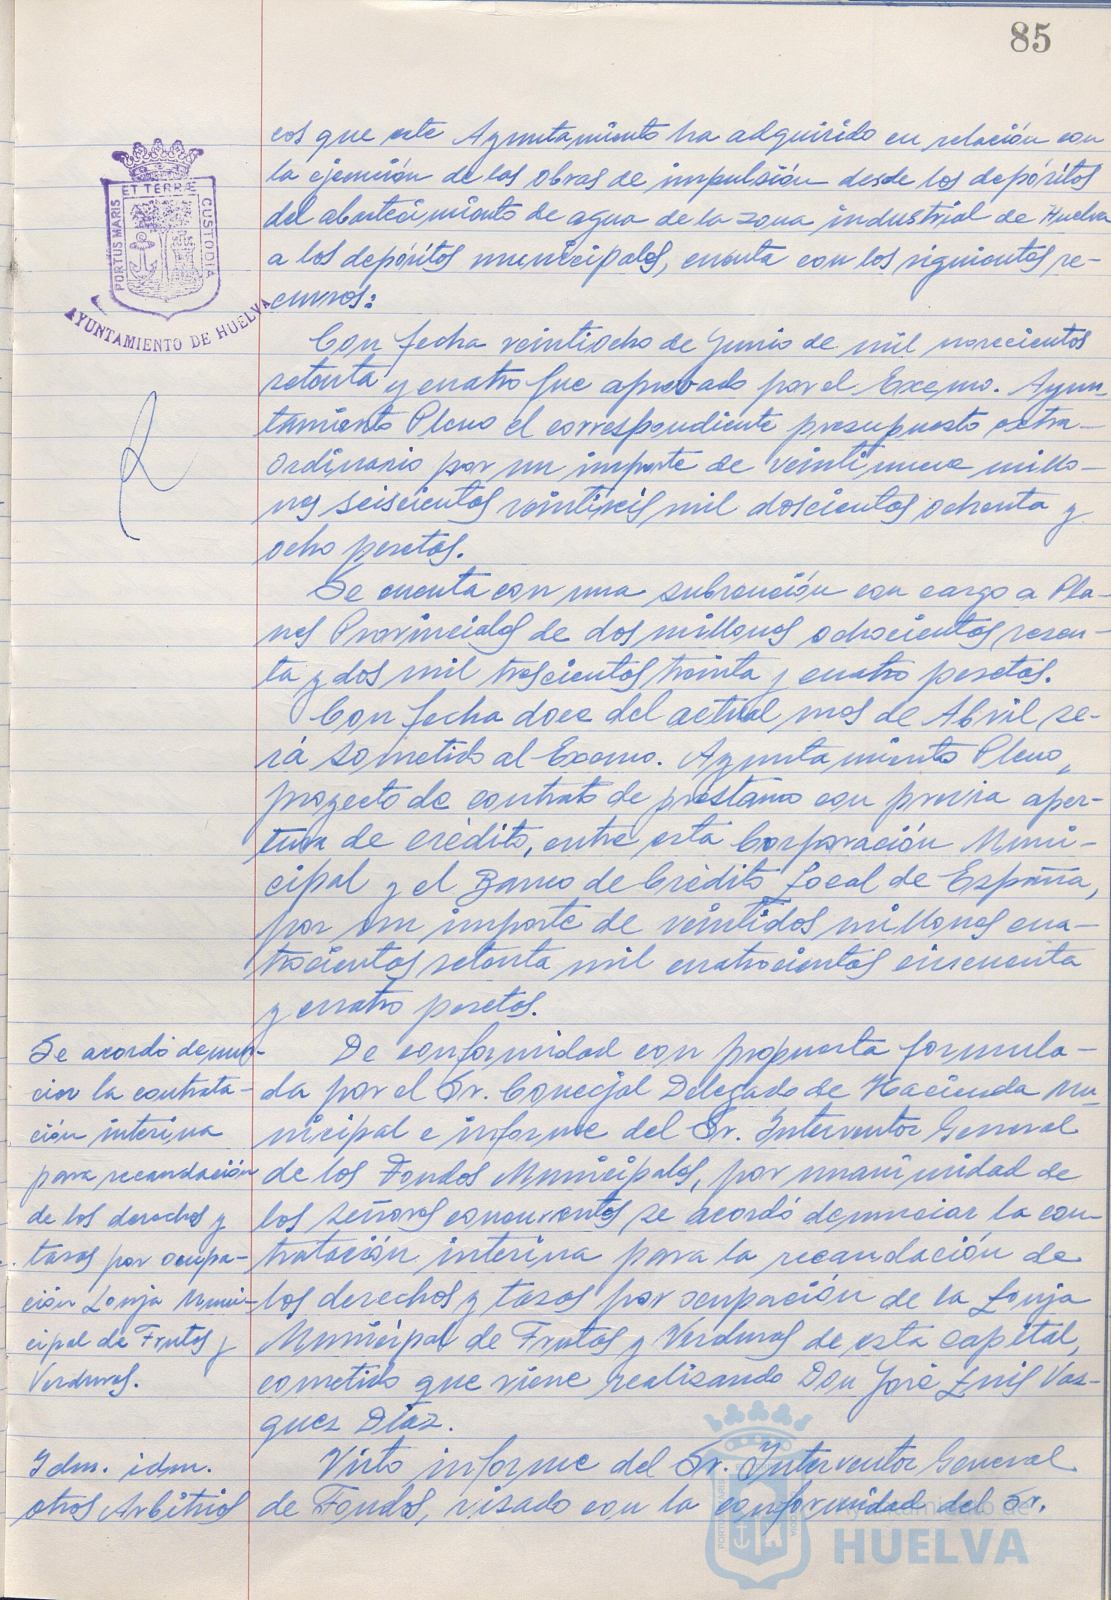 85
cos que este Ayuntamiento ha adquirido en relación con
la ejecución de las obras de impulsión desde los depósitos
del abastecimiento de agua de la zona industrial de Huelva
a los depósitos municipales, cuenta con los siguientes re-
cursos:
Con fecha veintiocho de Junio de mil novecientos
setenta y cuatro fue aprobado por el Excmo. Ayun-
tamiento Pleno el correspondiente presupuesto extra-
ordinario por un importe de veintinueve millo-
nes seiscientos veintiseis mil doscientos ochenta y
ocho pesetas.
Se cuenta con una subvención con cargo a Pla-
nes Provinciales de dos millones ochocientos sesen-
ta y dos mil trescientos treinta y cuatro pesetas.
Con fecha doce del actual mes de Abril se-
rá sometido al Excmo. Ayuntamiento Pleno,
proyecto de contrato de préstamo con previa aper-
tura de crédito, entre esta Corporación Muni-
cipal y el Banco de Crédito Local de España,
por un importe de veintidos millones cua-
trocientos setenta mil cuatrocientos cincuenta
y cuatro pesetas.
Se acordó denun-
ciar la contrata-
ción interina
para recaudación
de los derechos y
tasas por ocupa-
ción Lonja Muni-
cipal de Frutas y
Verduras.
De conformidad con propuesta formula-
da por el Sr. Concejal Delegado de Hacienda Mu-
nicipal e informe del Sr. Interventor General
de los Fondos Municipales, por unanimidad de
los señores concurrentes se acordó denunciar la con-
tratación interina para la recaudación de
los derechos y tasas por ocupación de la Lonja
Municipal de Frutas y Verduras de esta capital,
cometido que viene realizando Don José Luis Vaz-
quez Díaz.
Idm. idm.
otros Arbitrios
Visto informe del Sr. Interventor General
de Fondos, visado con la conformidad del Sr.
PORTUS MARIS ET TERRÆ CUSTODIA
AYUNTAMIENTO DE HUELVA
Ayuntamiento de
HUELVA